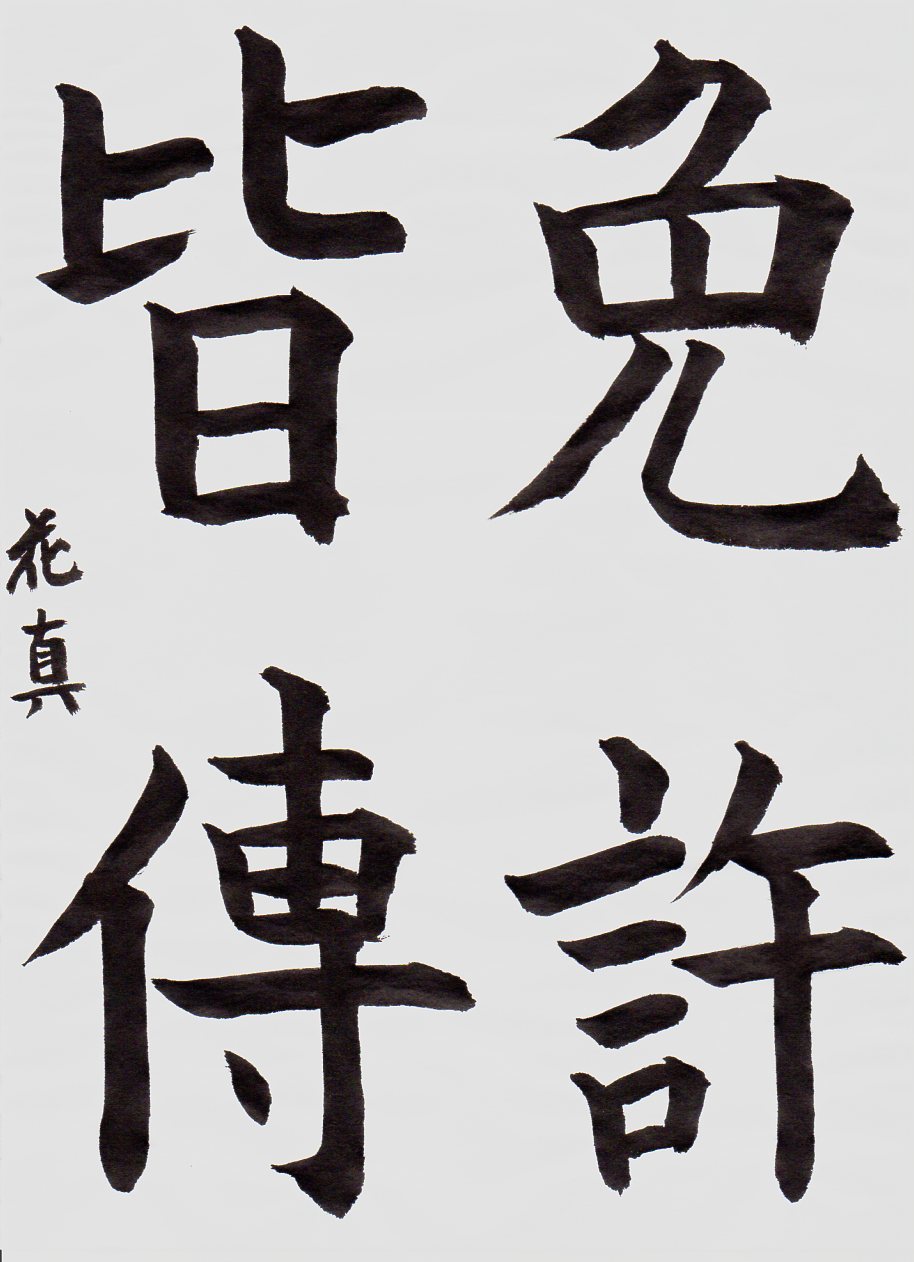 免許
皆傳
花真